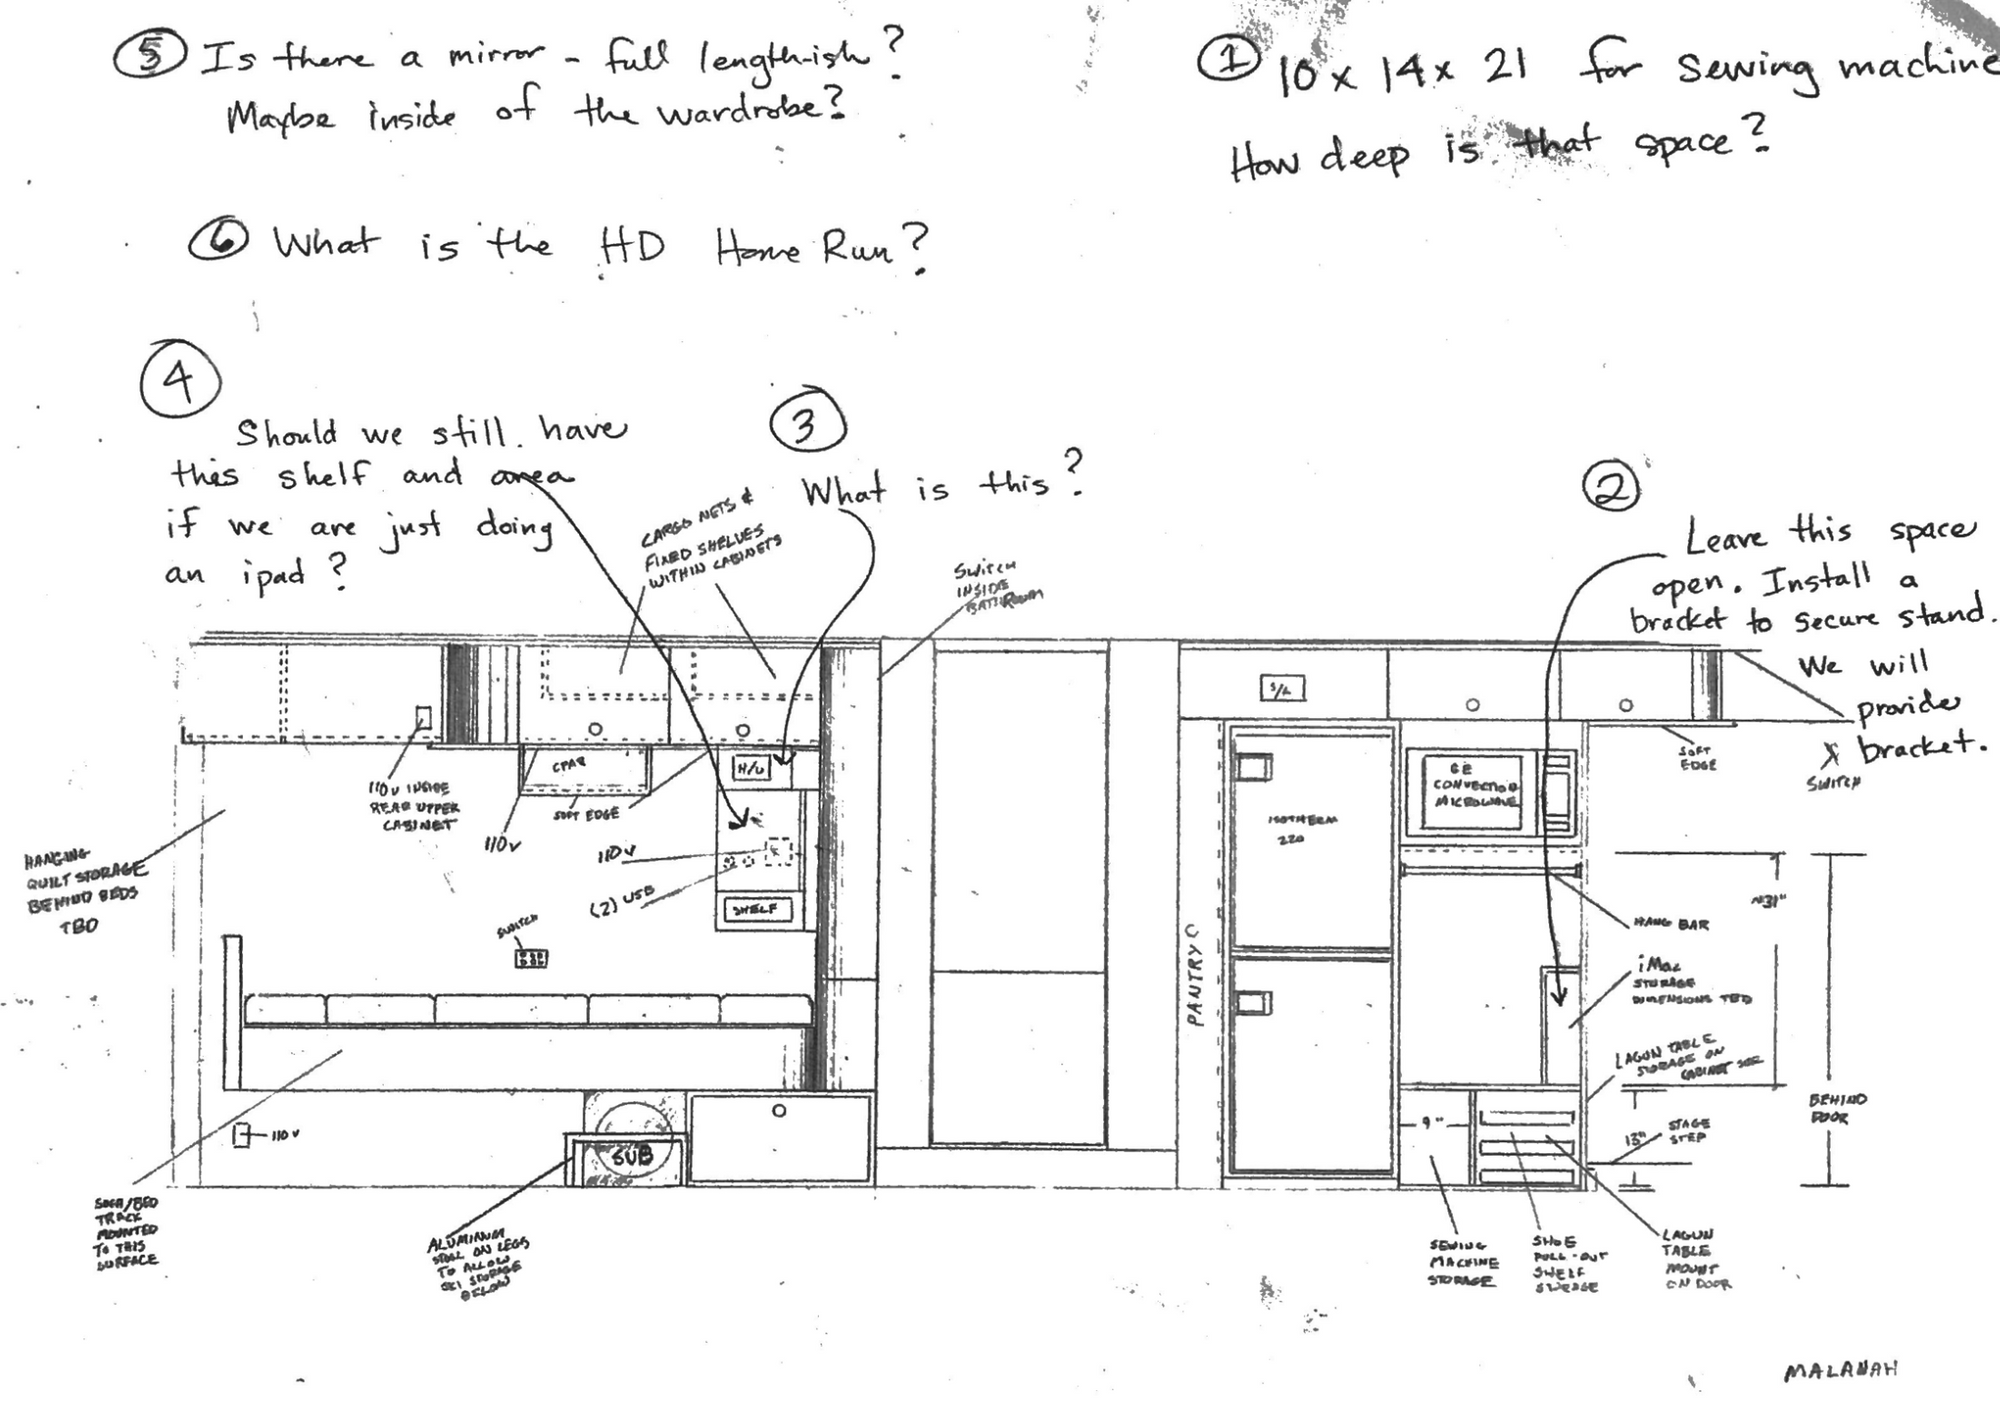 5 Is there a mirror - full length-ish?
Maybe inside of the wardrobe?
1 10 x 14 x 21 for sewing machine
How deep is that space?
6 What is the HD Home Run?
4
Should we still have
this shelf and area
if we are just doing
an ipad?
3
What is this?
2
Leave this space
open. Install a
bracket to secure stand.
We will
provide
bracket.
CARGO NETS &
FIXED SHELVES
WITHIN CABINETS
SWITCH
INSIDE
BATHROOM
110V INSIDE
REAR UPPER
CABINET
CPAP
SOFT EDGE
110V
H/U
110V
(2) USB
SHELF
SWITCH
HANGING
QUILT STORAGE
BEHIND BEDS
TBD
110V
SUB
SOFA/BED
TRACK
MOUNTED
TO THIS
SURFACE
ALUMINUM
ON LEGS
TO ALLOW
SKI STORAGE
BELOW
S/L
ISOTHERM
220
PANTRY
GE
CONVECTION
MICROWAVE
SOFT
EDGE
SWITCH
~31"
HANG BAR
iMac
STORAGE
DIMENSIONS TBD
LAGUN TABLE
STORAGE ON
CABINET
BEHIND
DOOR
STAGE
STEP
13"
9"
SEWING
MACHINE
STORAGE
SHOE
PULL-OUT
SHELF
LAGUN
TABLE
MOUNT
ON DOOR
MALANAH